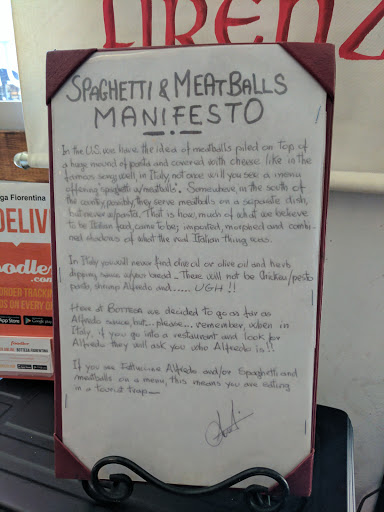 FIRENZ
SPAGHETTI & MEATBALLS
MANIFESTO
In the U.S. we have the idea of meatballs piled on top of
a huge mound of pasta and covered with cheese like in the
famous song, well, in Italy not once will you see a menu
offering "spaghetti w/meatballs". Somewhere, in the south of
the country, possibly, they serve meatballs on a separate dish,
but never w/pasta. That is how, much of what we believe
to be Italian food, came to be; imported, morphed and combi-
ned shadows of what the real Italian thing was.
In Italy you will never find olive oil or olive oil and herb
dipping sauce w/your bread... There will not be Chicken/pesto
pasta, shrimp Alfredo and...... UGH!!
Here at BOTTEGA we decided to go as far as
Alfredo sauce, but... please... remember, when in
Italy, if you go into a restaurant and look for
Alfredo they will ask you who Alfredo is!!
If you see Fettuccine Alfredo and/or Spaghetti and
meatballs on a menu, this means you are eating
in a tourist trap
ga Fiorentina
DELIV
oodle
.com
ONDER TRACKIN
DS ON EVERY O
App Store
Google Play
BOTTEGA FIORENTINA